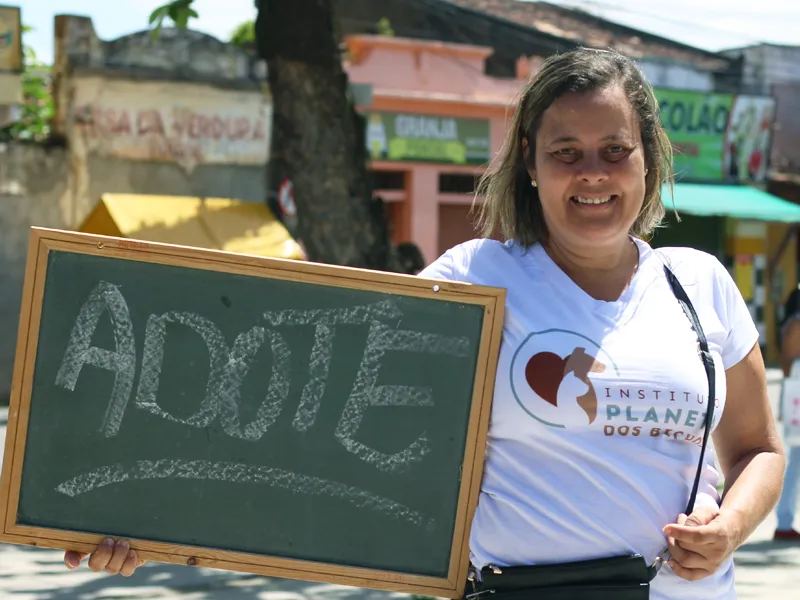 CASA DA VERDURA
GRANJA
COLÃO
ADOTE
INSTITUTO
PLANET
DOS BICHO